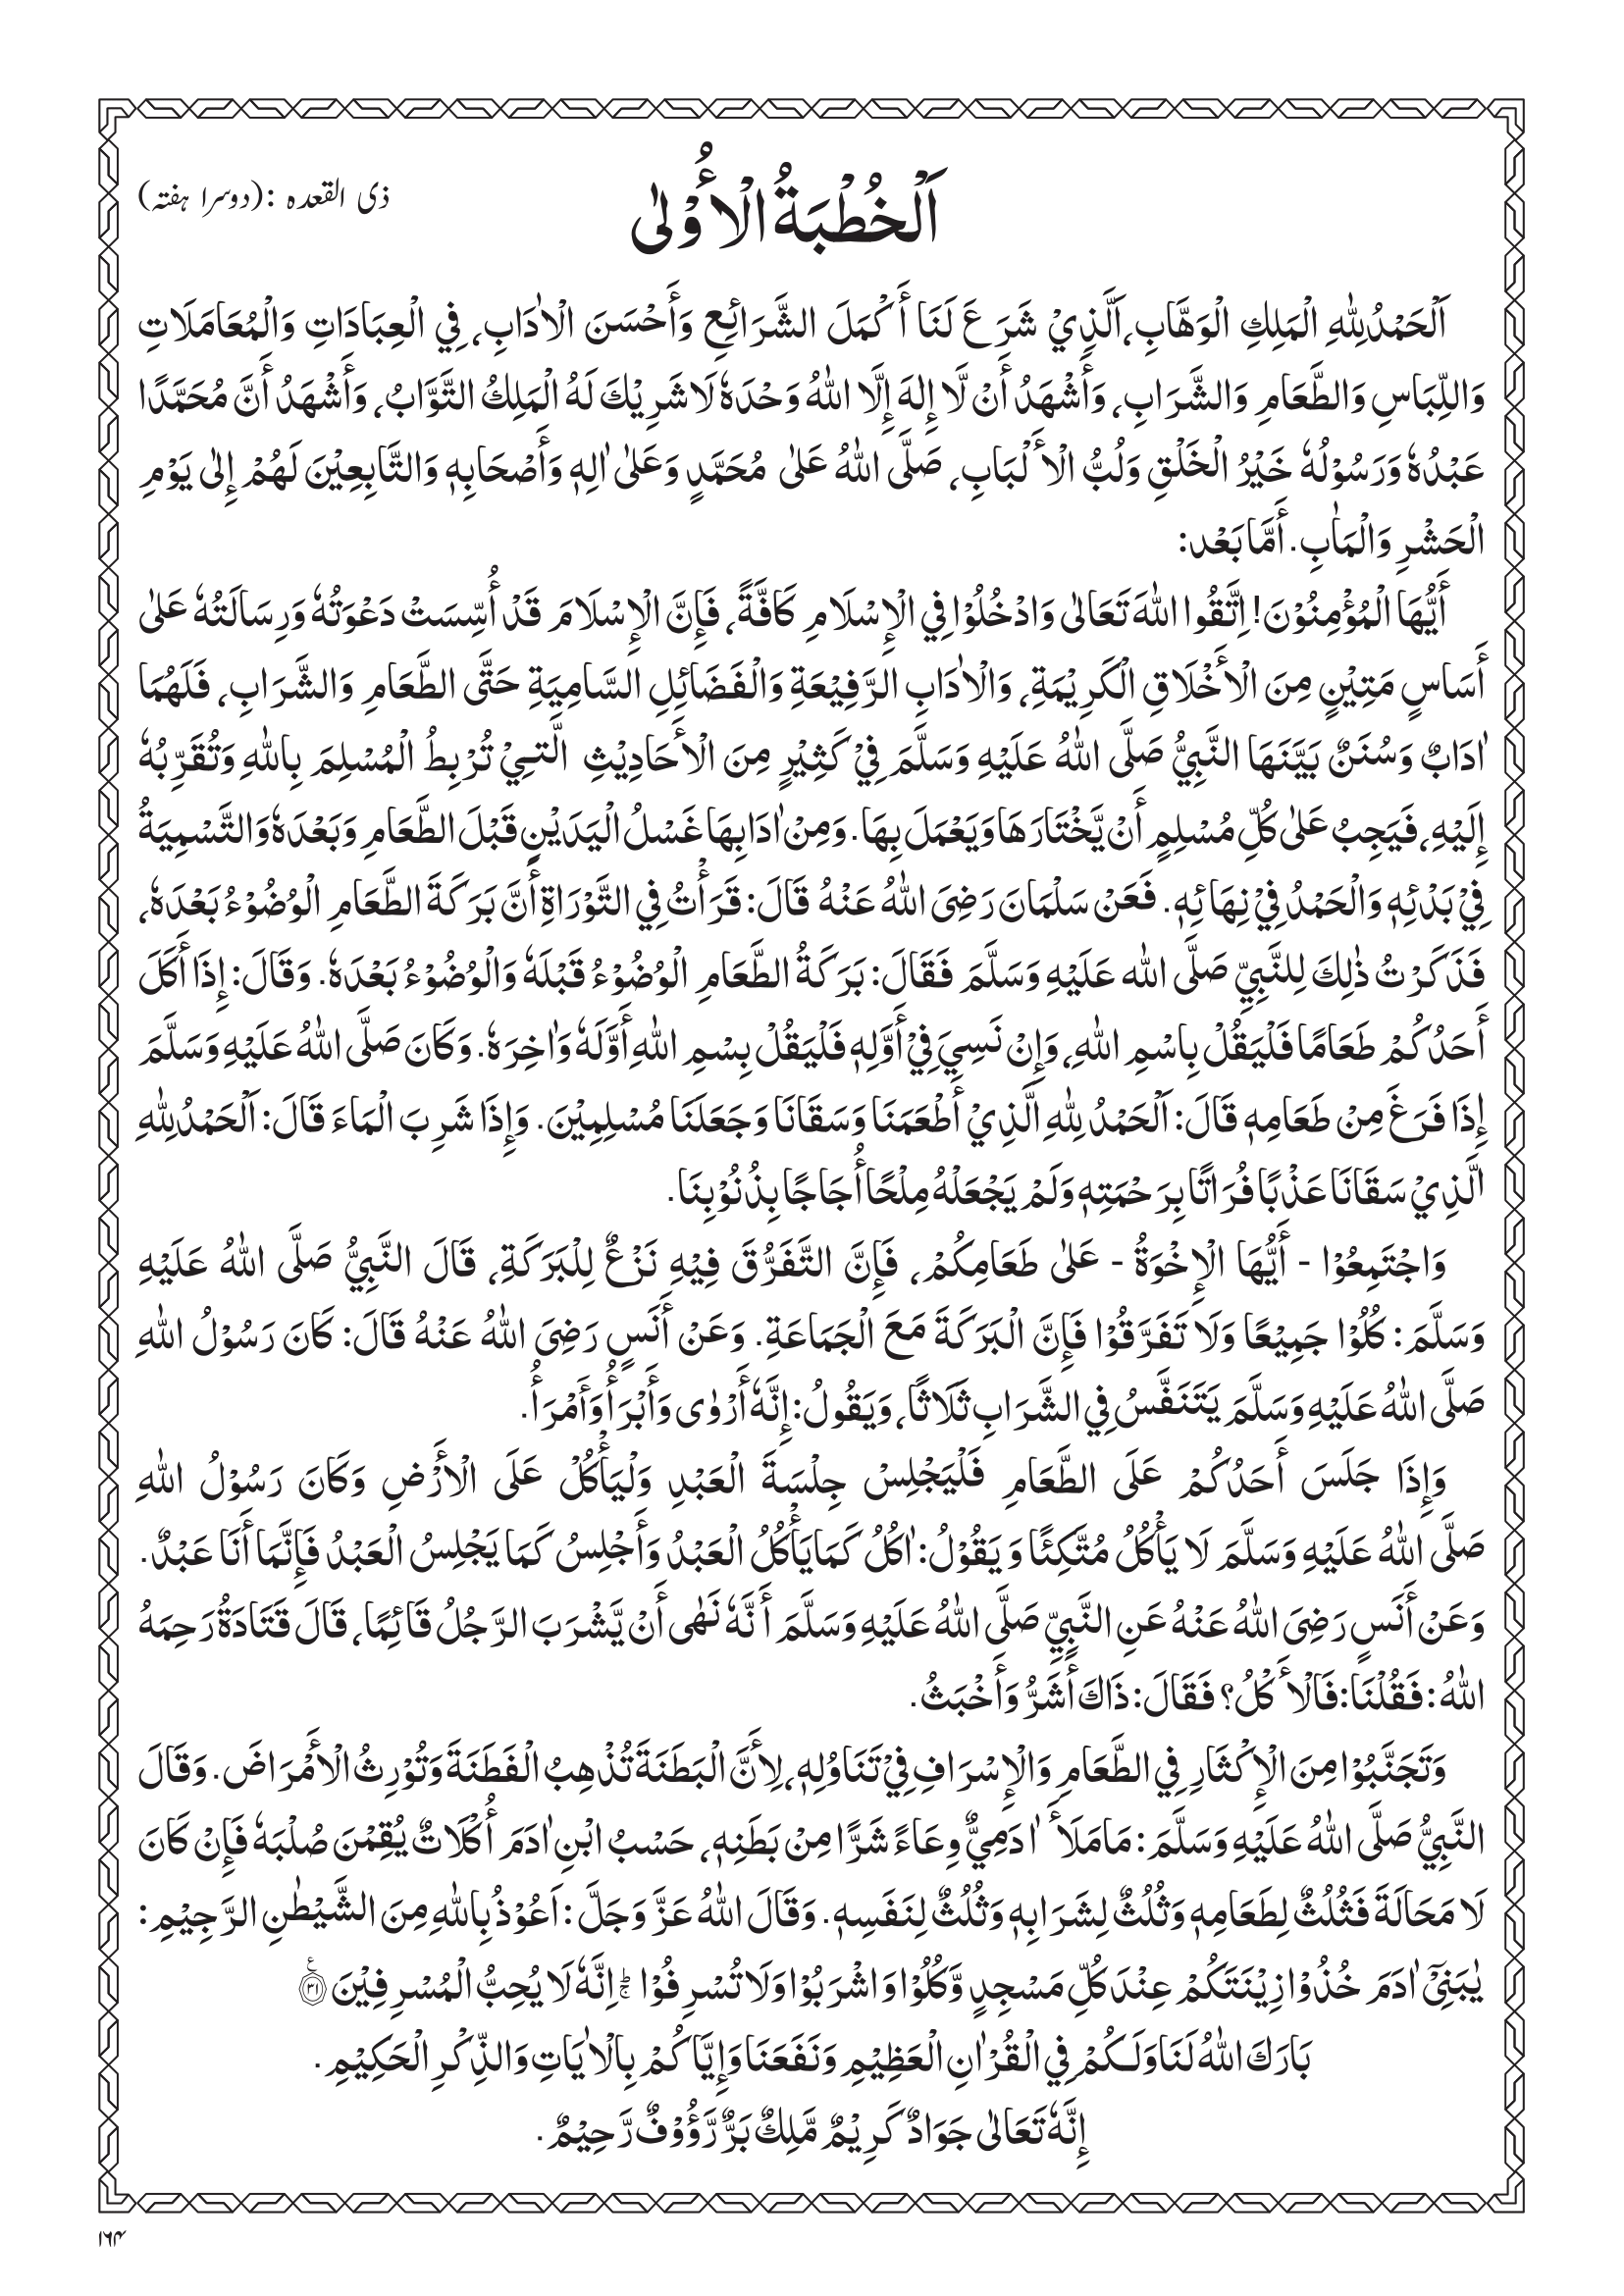 ذی القعدہ :(دوسرا ہفتہ)
اَلْخُطْبَةُ الْأُوْلٰى
اَلْحَمْدُ لِلّٰهِ الْمَلِكِ الْوَهَّابِ، اَلَّذِيْ شَرَعَ لَنَا أَكْمَلَ الشَّرَائِعِ وَأَحْسَنَ الْاٰدَابِ، فِي الْعِبَادَاتِ وَالْمُعَامَلَاتِ
وَاللِّبَاسِ وَالطَّعَامِ وَالشَّرَابِ، وَأَشْهَدُ أَنْ لَّا إِلٰهَ إِلَّا اللّٰهُ وَحْدَهٗ لَا شَرِيْكَ لَهُ الْمَلِكُ التَّوَّابُ، وَأَشْهَدُ أَنَّ مُحَمَّدًا
عَبْدُهٗ وَرَسُوْلُهٗ خَيْرُ الْخَلْقِ وَلُبُّ الْأَلْبَابِ، صَلَّى اللّٰهُ عَلىٰ مُحَمَّدٍ وَعَلىٰ اٰلِهٖ وَأَصْحَابِهٖ وَالتَّابِعِيْنَ لَهُمْ إِلىٰ يَوْمِ
الْحَشْرِ وَالْمَاٰبِ. أَمَّا بَعْد:
أَيُّهَا الْمُؤْمِنُوْنَ! اِتَّقُوا اللّٰهَ تَعَالىٰ وَادْخُلُوْا فِي الْإِسْلَامِ كَافَّةً، فَإِنَّ الْإِسْلَامَ قَدْ أُسِّسَتْ دَعْوَتُهٗ وَرِسَالَتُهٗ عَلىٰ
أَسَاسٍ مَتِيْنٍ مِنَ الْأَخْلَاقِ الْكَرِيْمَةِ، وَالْاٰدَابِ الرَّفِيْعَةِ وَالْفَضَائِلِ السَّامِيَةِ حَتَّى الطَّعَامِ وَالشَّرَابِ، فَلَهُمَا
اٰدَابٌ وَسُنَنٌ بَيَّنَهَا النَّبِيُّ صَلَّى اللّٰهُ عَلَيْهِ وَسَلَّمَ فِيْ كَثِيْرٍ مِنَ الْأَحَادِيْثِ الَّتِيْ تُرْبِطُ الْمُسْلِمَ بِاللّٰهِ وَتُقَرِّبُهٗ
إِلَيْهِ، فَيَجِبُ عَلىٰ كُلِّ مُسْلِمٍ أَنْ يَّخْتَارَهَا وَيَعْمَلَ بِهَا. وَمِنْ اٰدَابِهَا غَسْلُ الْيَدَيْنِ قَبْلَ الطَّعَامِ وَبَعْدَهٗ وَالتَّسْمِيَةُ
فِيْ بَدْئِهٖ وَالْحَمْدُ فِيْ نِهَائِهٖ. فَعَنْ سَلْمَانَ رَضِىَ اللّٰهُ عَنْهُ قَالَ: قَرَأْتُ فِي التَّوْرَاةِ أَنَّ بَرَكَةَ الطَّعَامِ الْوُضُوْءُ بَعْدَهٗ،
فَذَكَرْتُ ذٰلِكَ لِلنَّبِيِّ صَلَّى اللّٰه عَلَيْهِ وَسَلَّمَ فَقَالَ: بَرَكَةُ الطَّعَامِ الْوُضُوْءُ قَبْلَهٗ وَالْوُضُوْءُ بَعْدَهٗ. وَقَالَ: إِذَا أَكَلَ
أَحَدُكُمْ طَعَامًا فَلْيَقُلْ بِاسْمِ اللّٰهِ، وَإِنْ نَسِيَ فِيْ أَوَّلِهٖ فَلْيَقُلْ بِسْمِ اللّٰهِ أَوَّلَهٗ وَاٰخِرَهٗ. وَكَانَ صَلَّى اللّٰهُ عَلَيْهِ وَسَلَّمَ
إِذَا فَرَغَ مِنْ طَعَامِهٖ قَالَ: اَلْحَمْدُ لِلّٰهِ الَّذِيْ أَطْعَمَنَا وَسَقَانَا وَجَعَلَنَا مُسْلِمِيْنَ. وَإِذَا شَرِبَ الْمَاءَ قَالَ: اَلْحَمْدُ لِلّٰهِ
الَّذِيْ سَقَانَا عَذْبًا فُرَاتًا بِرَحْمَتِهٖ وَلَمْ يَجْعَلْهُ مِلْحًا أُجَاجًا بِذُنُوْبِنَا.
وَاجْتَمِعُوْا - أَيُّهَا الْإِخْوَةُ - عَلىٰ طَعَامِكُمْ، فَإِنَّ التَّفَرُّقَ فِيْهِ نَزْعٌ لِلْبَرَكَةِ، قَالَ النَّبِيُّ صَلَّى اللّٰهُ عَلَيْهِ
وَسَلَّمَ: كُلُوْا جَمِيْعًا وَلَا تَفَرَّقُوْا فَإِنَّ الْبَرَكَةَ مَعَ الْجَمَاعَةِ. وَعَنْ أَنَسٍ رَضِىَ اللّٰهُ عَنْهُ قَالَ: كَانَ رَسُوْلُ اللّٰهِ
صَلَّى اللّٰهُ عَلَيْهِ وَسَلَّمَ يَتَنَفَّسُ فِي الشَّرَابِ ثَلَاثًا، وَيَقُولُ: إِنَّهٗ أَرْوٰى وَأَبْرَأُ وَأَمْرَأُ.
وَإِذَا جَلَسَ أَحَدُكُمْ عَلَى الطَّعَامِ فَلْيَجْلِسْ جِلْسَةَ الْعَبْدِ وَلْيَأْكُلْ عَلَى الْأَرْضِ وَكَانَ رَسُوْلُ اللّٰهِ
صَلَّى اللّٰهُ عَلَيْهِ وَسَلَّمَ لَا يَأْكُلُ مُتَّكِئًا وَيَقُوْلُ: اٰكُلُ كَمَا يَأْكُلُ الْعَبْدُ وَأَجْلِسُ كَمَا يَجْلِسُ الْعَبْدُ فَإِنَّمَا أَنَا عَبْدٌ.
وَعَنْ أَنَسٍ رَضِىَ اللّٰهُ عَنْهُ عَنِ النَّبِيِّ صَلَّى اللّٰهُ عَلَيْهِ وَسَلَّمَ أَنَّهٗ نَهٰى أَنْ يَّشْرَبَ الرَّجُلُ قَائِمًا، قَالَ قَتَادَةُ رَحِمَهُ
اللّٰهُ: فَقُلْنَا: فَالْأَكْلُ؟ فَقَالَ: ذَاكَ أَشَرُّ وَأَخْبَثُ.
وَتَجَنَّبُوْا مِنَ الْإِكْثَارِ فِي الطَّعَامِ وَالْإِسْرَافِ فِيْ تَنَاوُلِهٖ، لِأَنَّ الْبَطَنَةَ تُذْهِبُ الْفَطَنَةَ وَتُوْرِثُ الْأَمْرَاضَ. وَقَالَ
النَّبِيُّ صَلَّى اللّٰهُ عَلَيْهِ وَسَلَّمَ: مَا مَلَأَ اٰدَمِيٌّ وِعَاءً شَرًّا مِنْ بَطَنِهٖ، حَسْبُ ابْنِ اٰدَمَ أُكْلَاتٌ يُقِمْنَ صُلْبَهٗ فَإِنْ كَانَ
لَا مَحَالَةَ فَثُلُثٌ لِطَعَامِهٖ وَثُلُثٌ لِشَرَابِهٖ وَثُلُثٌ لِنَفَسِهٖ. وَقَالَ اللّٰهُ عَزَّ وَجَلَّ: اَعُوْذُ بِاللّٰهِ مِنَ الشَّيْطٰنِ الرَّجِيْمِ:
يٰبَنِيْٓ اٰدَمَ خُذُوْا زِيْنَتَكُمْ عِنْدَ كُلِّ مَسْجِدٍ وَّكُلُوْا وَاشْرَبُوْا وَلَا تُسْرِفُوْا ۚ اِنَّهٗ لَا يُحِبُّ الْمُسْرِفِيْنَ ۝۳۱ ع
بَارَكَ اللّٰهُ لَنَا وَلَكُمْ فِي الْقُرْاٰنِ الْعَظِيْمِ وَنَفَعَنَا وَإِيَّاكُمْ بِالْاٰيَاتِ وَالذِّكْرِ الْحَكِيْمِ.
إِنَّهٗ تَعَالىٰ جَوَادٌ كَرِيْمٌ مَّلِكٌ بَرٌّ رَّؤُوْفٌ رَّحِيْمٌ.
۱۶۴